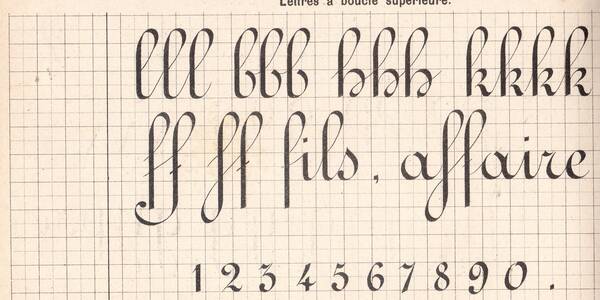 Lettres à boucle supérieure.
lll bbb hhh kkkk
ff ff fils, affaire
1 2 3 4 5 6 7 8 9 0 .